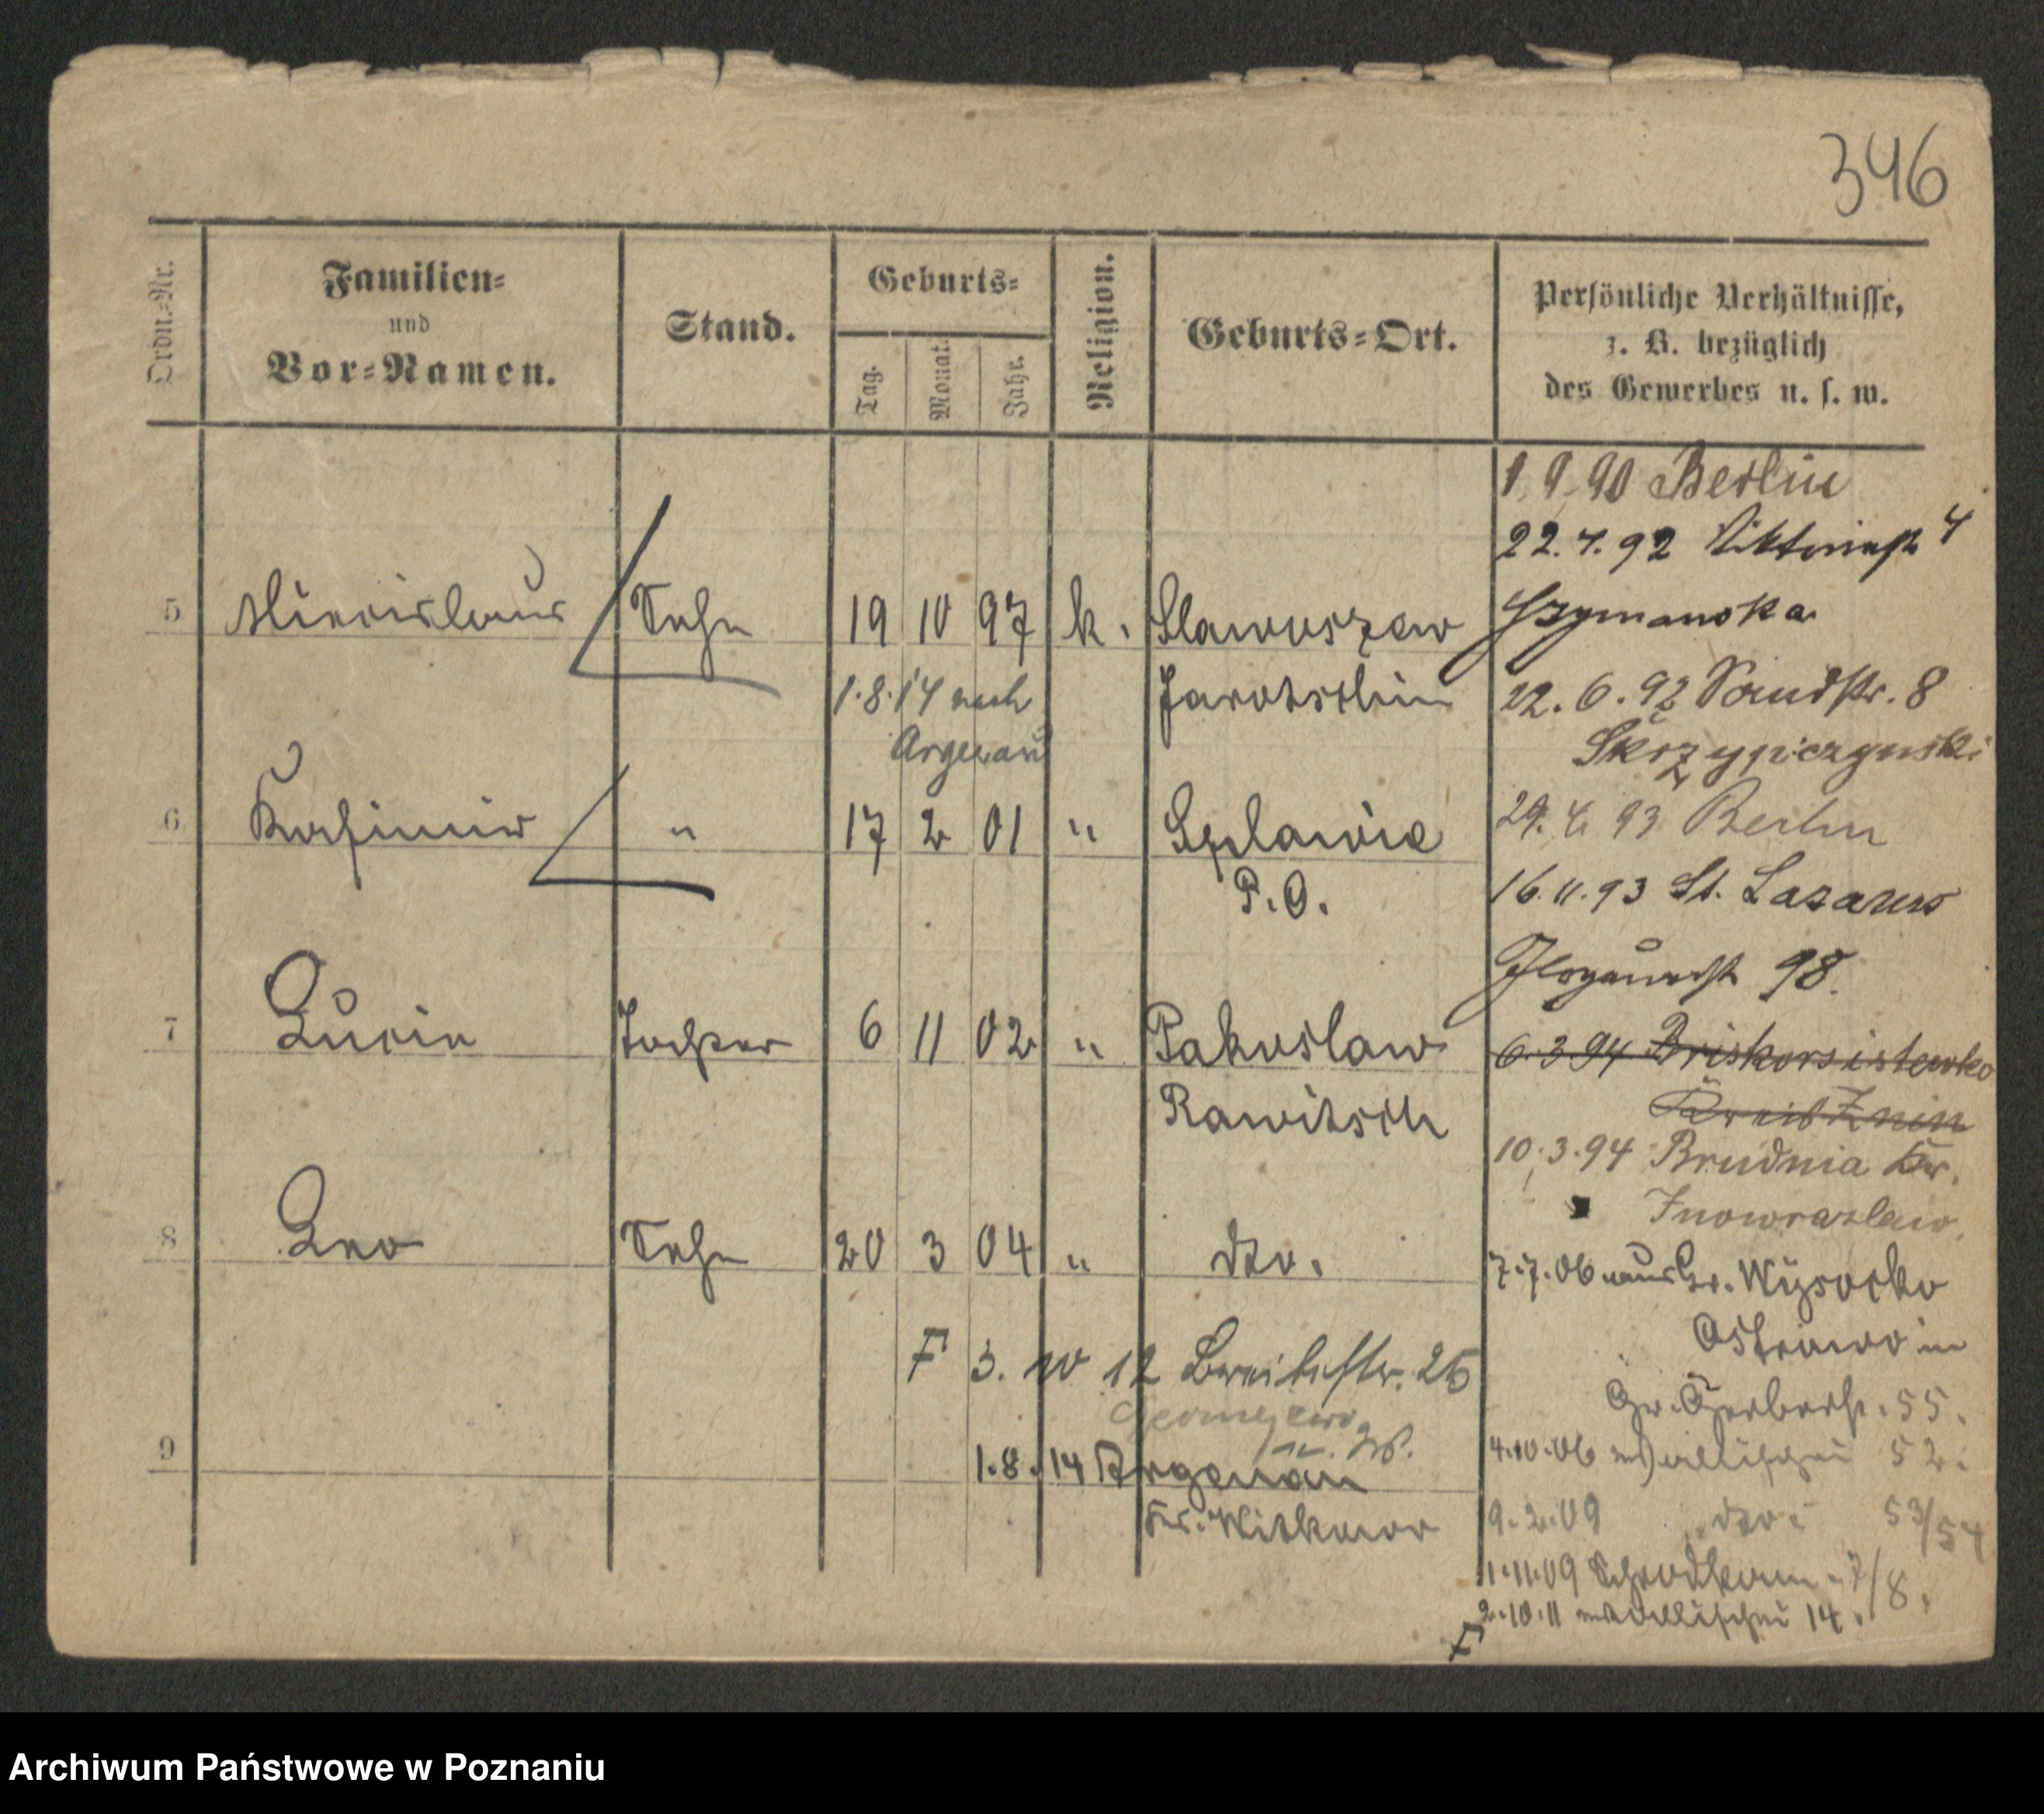 346
Ordn.-Nr.
Familien-
und
Vor-Namen.
Stand.
Geburts-
Tag.
Monat.
Jahr.
Religion.
Geburts-Ort.
Persönliche Verhältnisse,
z. B. bezüglich
des Gewerbes u. s. w.
1 9 90 Berlin
22.4.92 Viktoriastr 4
Szymanska
5 Miecislaus Sohn 19 10 97 k. Slawoszew
Jarotschin
1.8.14 nach
Argenau
22.6.92 Sandstr. 8
Skrzypiczynski
6 Kasimir " 17 2 01 " Splawie
P.O.
29.4 93 Berlin
16.11.93 St. Lazarus
Glogauerstr 98.
7 Lucie Tochter 6 11 02 " Pakoslaw
Rawitsch
6.3.94 Briskorsistewko
Kreis Znin
10.3.94 Brudnia Kr.
Inowrazlaw
8 Leo Sohn 20 3 04 " dto.
7.7.06 aus Gr. Wysocko
Ostrowo in
F 3. 10 12 Breitestr. 26
Gr. Gerberstr. 55.
9 1.8.14 Argenau
Kr. Witkowo
4.10.06 Wallischei 52.
9.2.09 " dto. 53/54
1.11.09 Schrodkam. 7/8.
F 2.10.11 Wallischei 14.
Archiwum Państwowe w Poznaniu